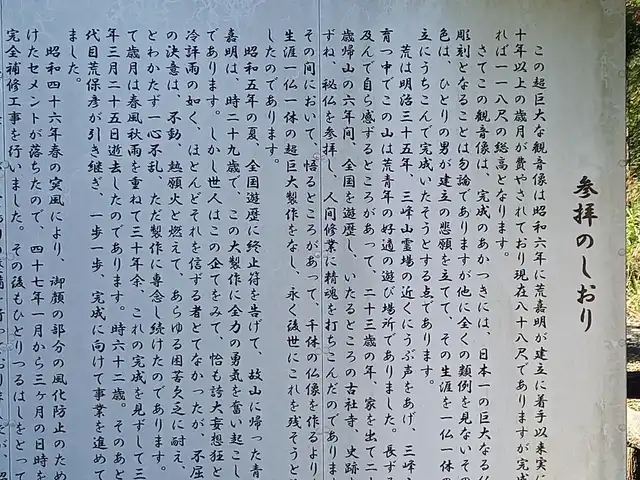 参拝のしおり
この超巨大な観音像は昭和六年に荒嘉明が建立に着手以来実に
十年以上の歳月が費やされており現在八十八尺でありますが完成
れば一一八尺の総高となります。
さてこの観音像は、完成のあかつきには、日本一の巨大なる仏
彫刻となることは勿論でありますが他に全くの類例を見ないその
色は、ひとりの男が建立の悲願を立てて、その生涯を一仏一体の
立にうちこんで完成いたそうとする点であります。
荒は明治三十五年、三峰山霊場の近くにうぶ声をあげ、三峰
育つ中でこの山は荒青年の好適の遊び場所でありました。長ずる
及んで自ら感ずるところがあって、二十三歳の年、家を出て二十
歳帰山の六年間、全国を遊歴し、いたるところの古社寺、史跡
ずね、秘仏を参拝し、人間修業に精魂を打ちこんだのでありま
その間において、悟るところがあって、千体の仏像を作るより
生涯一仏一体の超巨大製作をなし、永く後世にこれを残そうと
したのであります。
昭和五年の夏、全国遊歴に終止符を告げて、故山に帰った青
嘉明は、時二十九歳で、この大製作に全力の勇気を奮い起こし
であります。しかし世人はこの企てをみて、恰も誇大妄想狂と
冷評雨の如く、ほとんどそれを信ずる者とてなかったが、不屈
の決意は、不動、熱願火と燃えて、あらゆる困苦欠乏に耐え、
とわかたず一心不乱、ただ製作に専念し続けたのであります。
て歳月は春風秋雨を重ねて三十年余、これの完成を見ずして三
年三月二十五日逝去したのであります。時六十二歳。そのあと
代目荒保彦が引き継ぎ、一歩一歩、完成に向けて事業を進めて
ました。
昭和四十六年春の突風により、御顔の部分の風化防止のため
けたセメントが落ちたので、四十七年一月から三ヶ月の日時を
完全補修工事を行いました。その後もひとりつるはしをとって